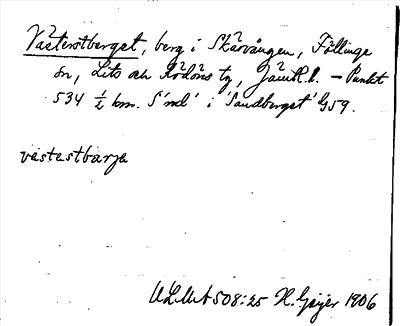 Västerstberget, berg i Skärvången, Föllinge
sn, Lits och Rödöns tg, Jämtl. l. – Punkt
534 ½ km. S'md' i 'Sandberget' G59.
västestbarja
ULMA 508:25 H. Geijer 1906